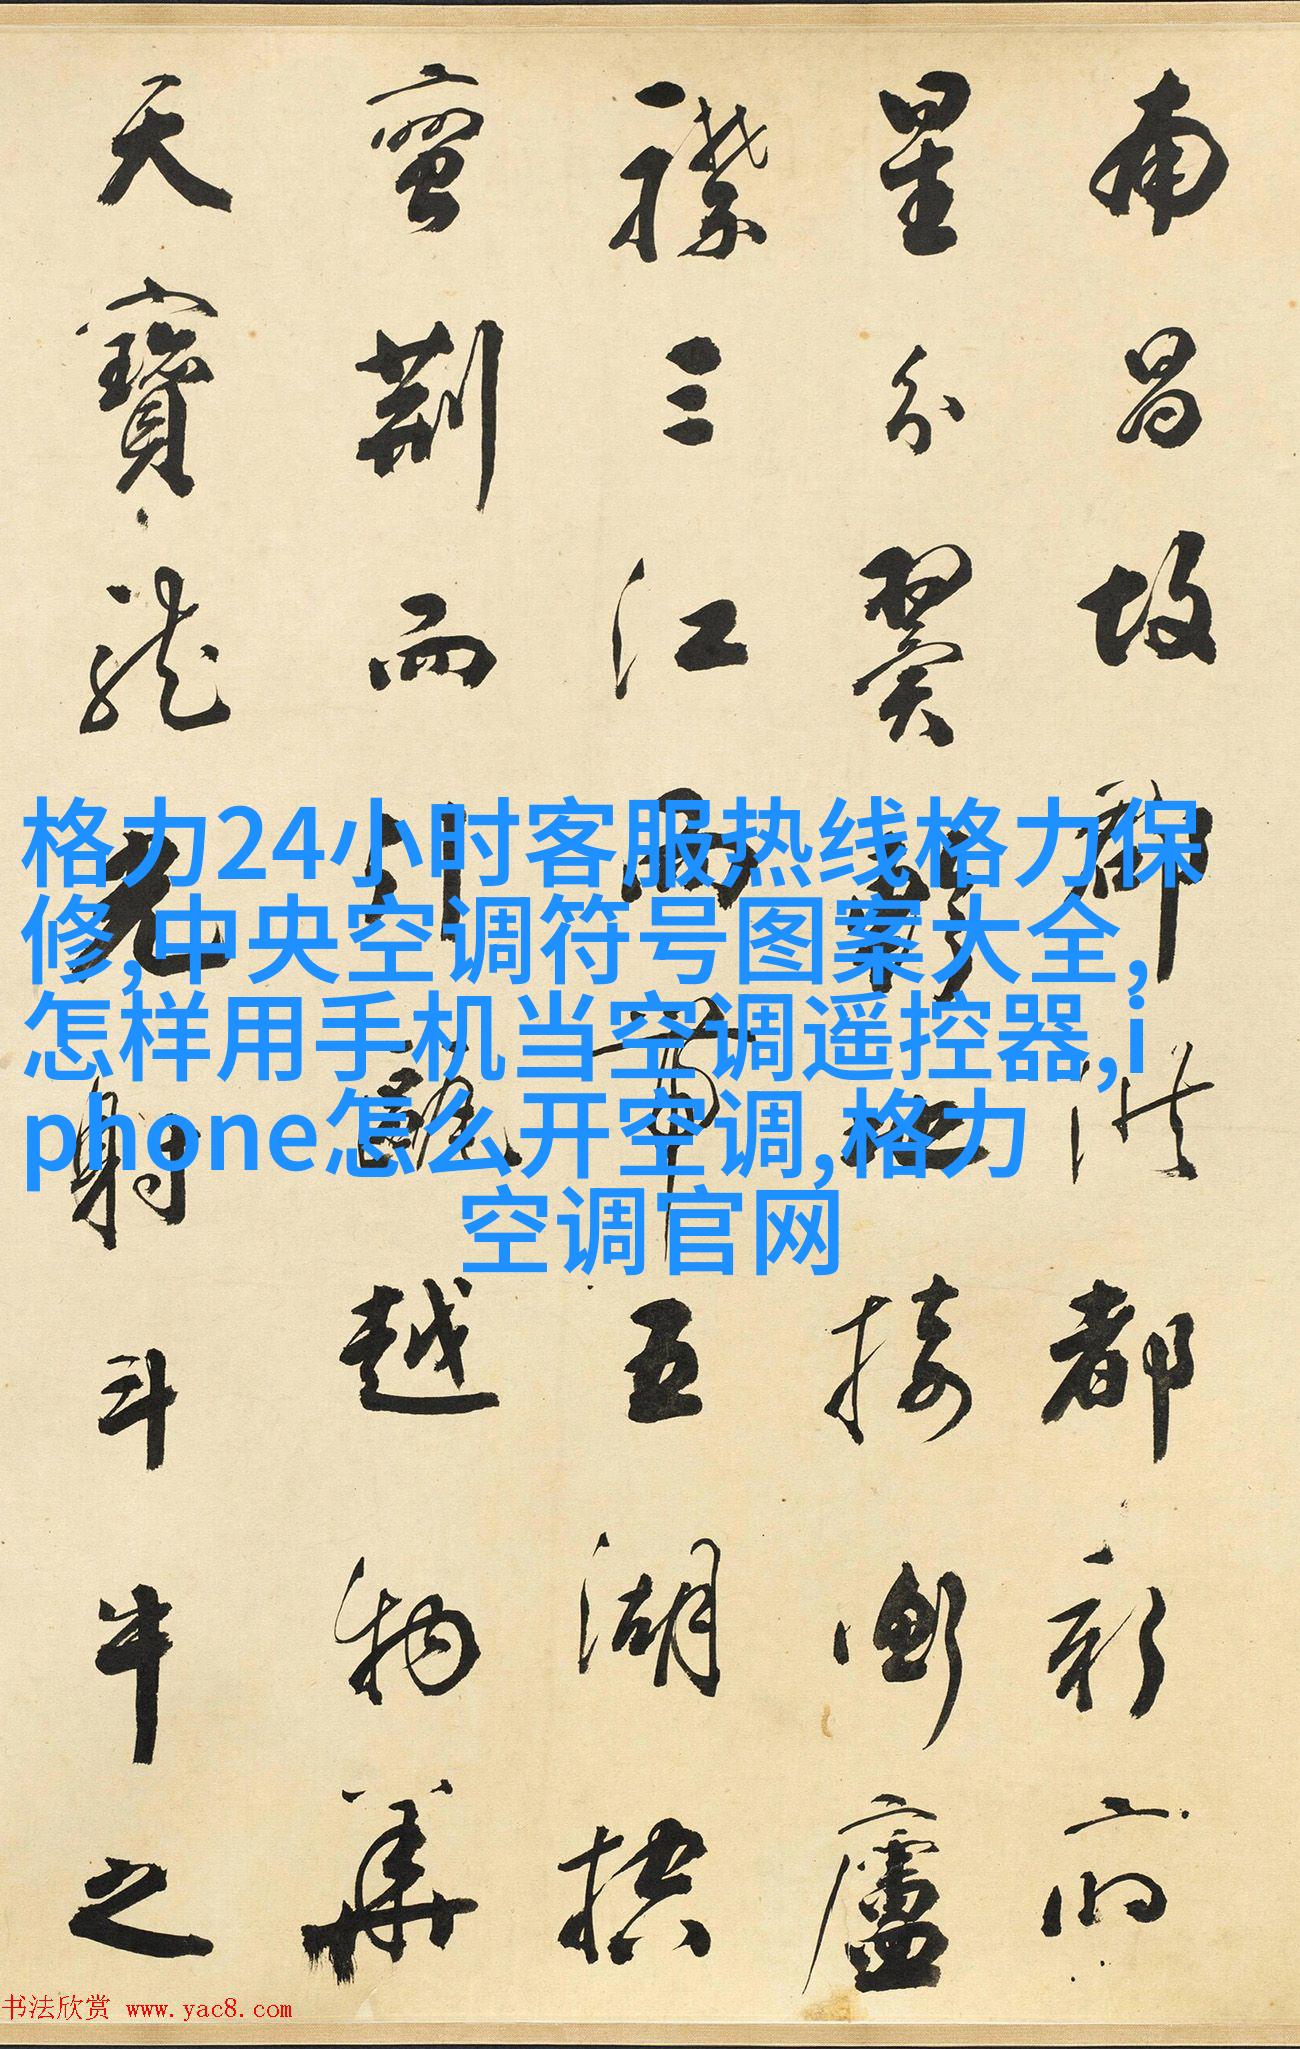 南昌故郡洪都新府
星分翼軫地接衡廬
襟三江而帶五湖控
蠻荊而引甌越物華
天寶龍光射斗牛之
格力24小时客服热线格力保
修,中央空调符号图案大全,
怎样用手机当空调遥控器,i
phone怎么开空调,格力
空调官网
书法欣赏 www.yac8.com